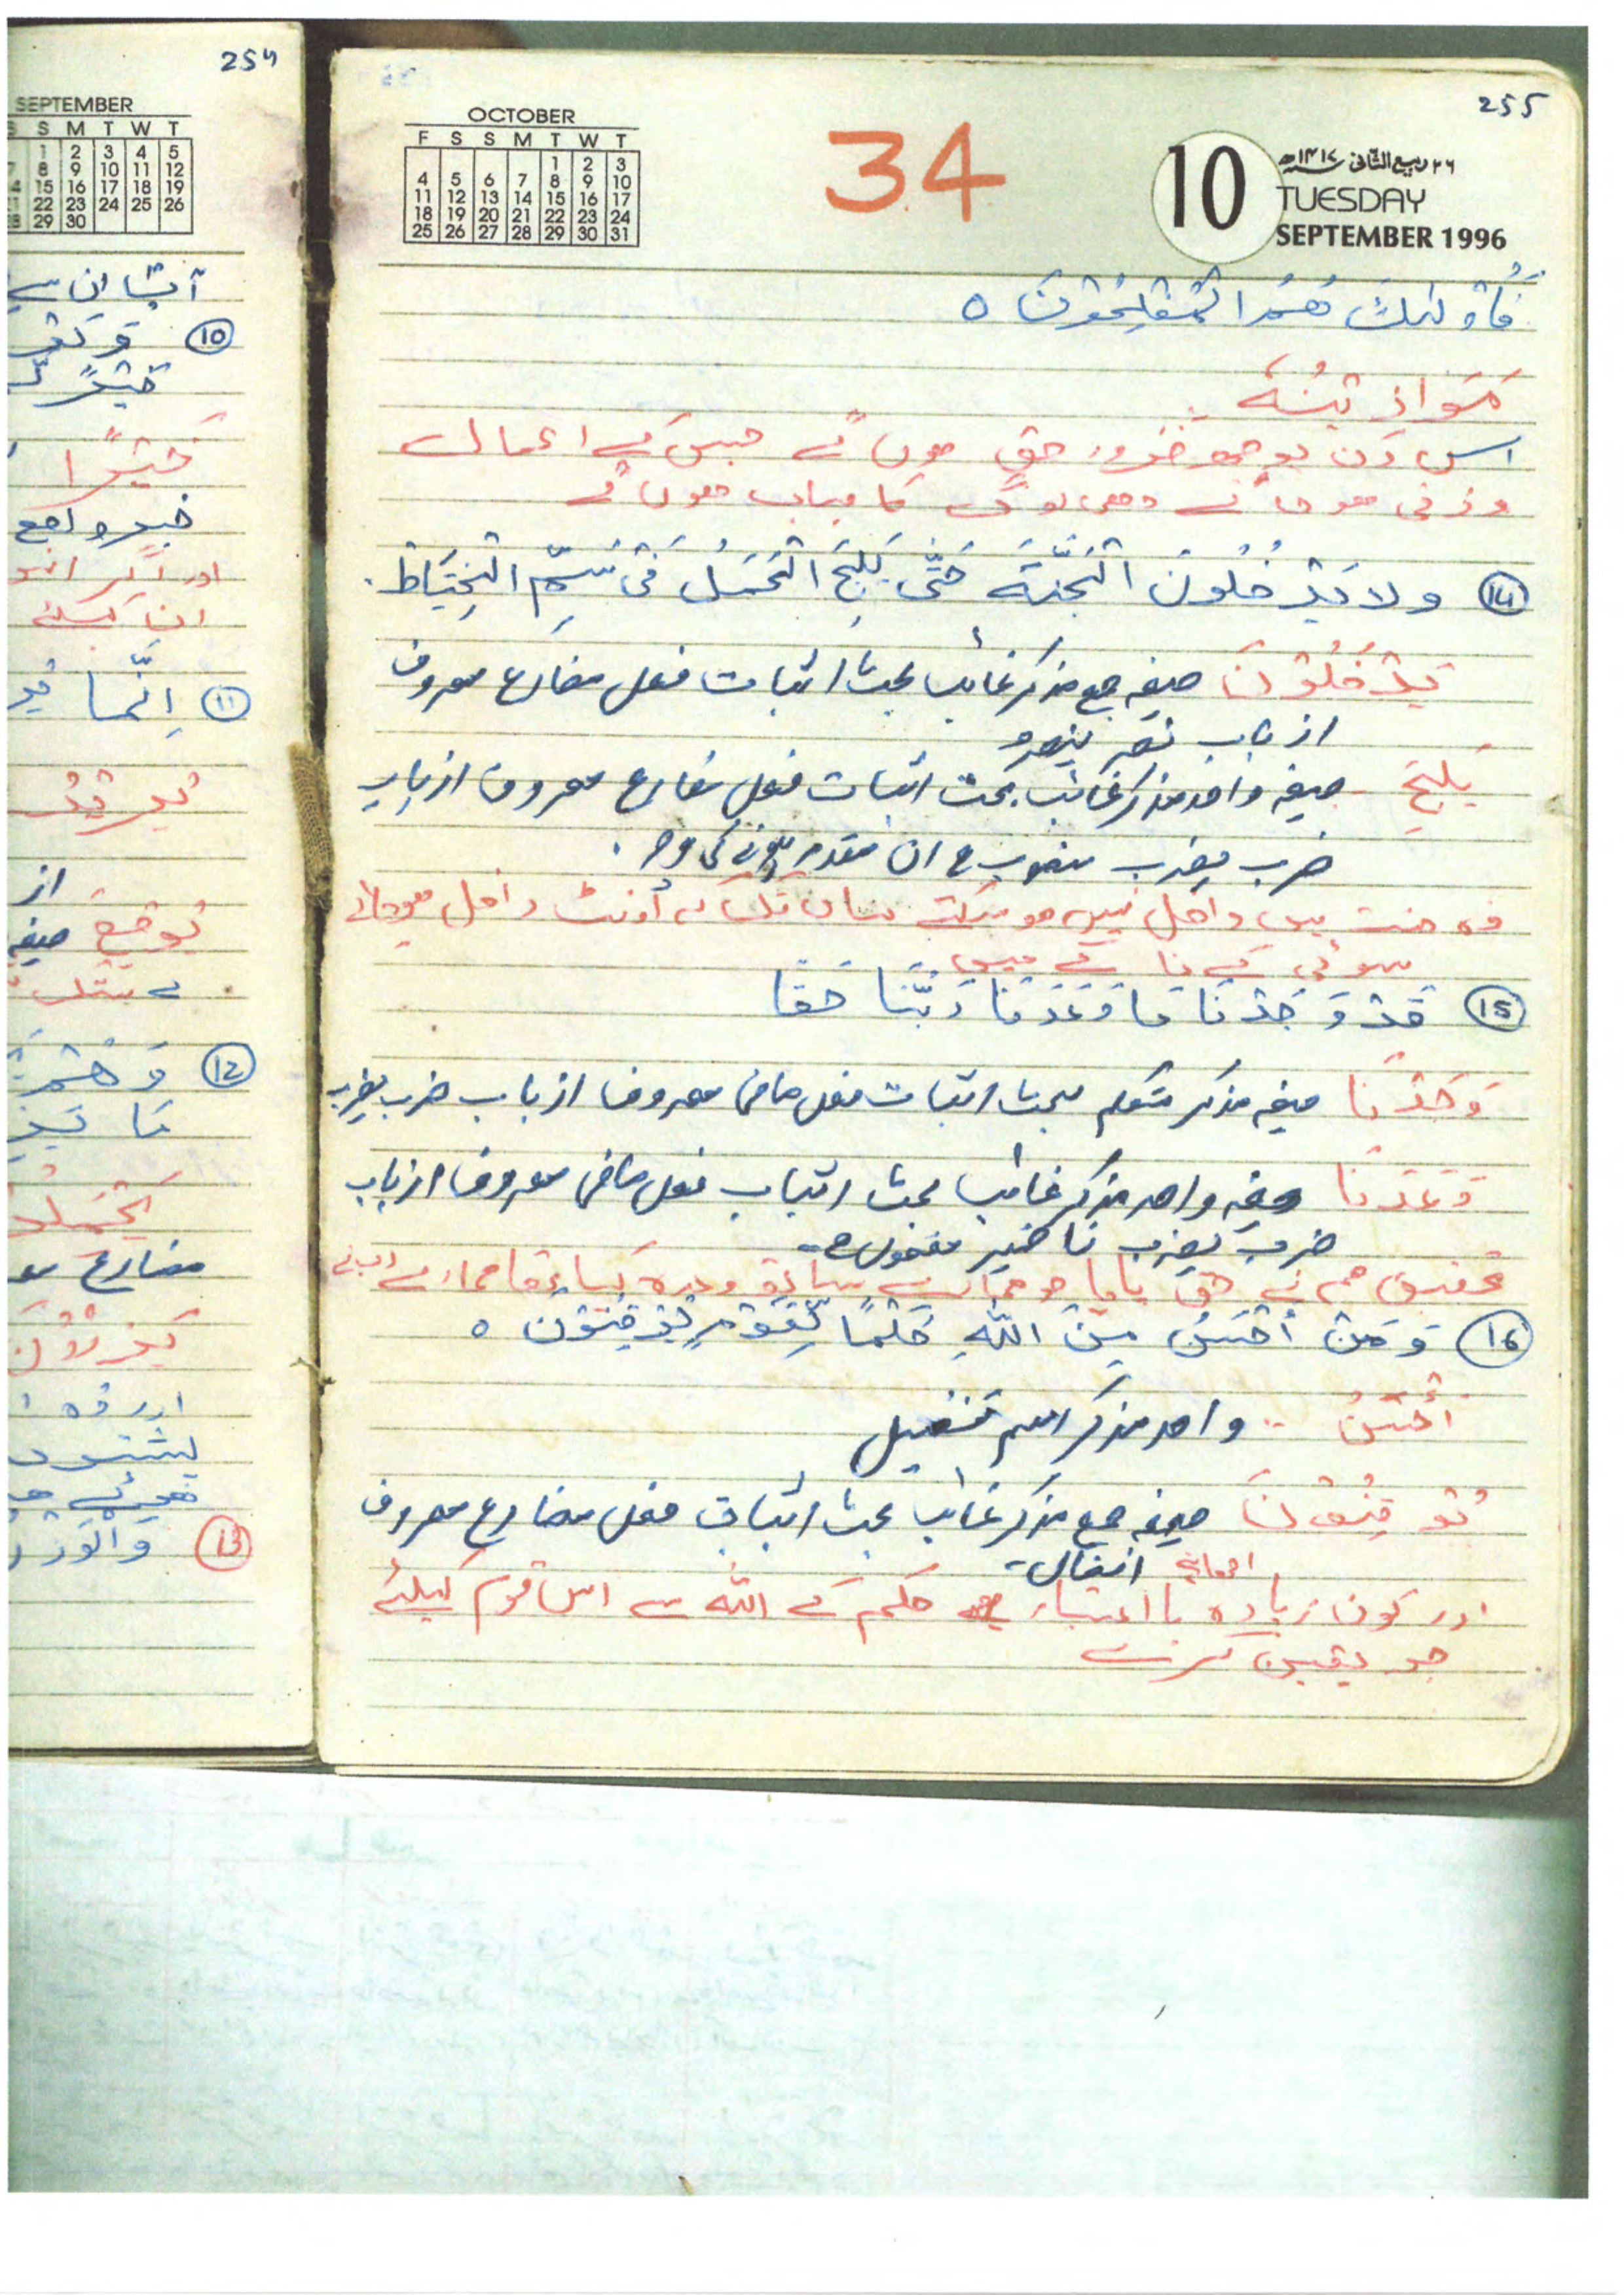 255
OCTOBER
F S S M T W T
1 2 3
4 5 6 7 8 9 10
11 12 13 14 15 16 17
18 19 20 21 22 23 24
25 26 27 28 29 30 31
34
10
۲۶ ربیع الثانی ۱۴۱۷ھ
TUESDAY
SEPTEMBER 1996
فَاُولٰئِكَ هُمُ الْمُفْلِحُوْنَ ٥
مَوَازِيْنُهٗ
اس دن بوجھ ضرور حق ہوں گے جس کے اعمال
وزنی ہو جائے وہی لوگ کامیاب ہوں گے
(14) ولا يَدْخُلُونَ الْجَنَّةَ حَتّٰى يَلِجَ الْجَمَلُ فِىْ سَمِّ الْخِيَاطِ.
يَدْخُلُوْنَ صیغہ جمع مذکر غائب بحث اثبات فعل مضارع معروف
از باب نصر ینصر
يَلِجَ صیغہ واحد مذکر غائب بحث اثبات فعل مضارع معروف از باب
ضرب یضرب منصوب ان مقدر ہونے کی وجہ
وہ جنت میں داخل نہیں ہو سکتے یہاں تک کہ اونٹ داخل ہوجائے
سوئی کے ناکے میں
(15) قَدْ وَجَدْنَا مَا وَعَدَنَا رَبُّنَا حَقًّا
وَجَدْنَا صیغہ مذکر متکلم بحث اثبات فعل ماضی معروف از باب ضرب یضرب
وَعَدَنَا صیغہ واحد مذکر غائب بحث اثبات فعل ماضی معروف از باب
ضرب یضرب نا ضمیر مفعول ہے
تحقیق ہم نے حق پایا جو ہمارے ساتھ وعدہ کیا تھا ہمارے رب نے
(16) وَمَنْ اَحْسَنُ مِنَ اللّٰهِ حُكْمًا لِّقَوْمٍ يُّوْقِنُوْنَ ٥
اَحْسَنُ واحد مذکر اسم تفضیل
يُوْقِنُوْنَ صیغہ جمع مذکر غائب بحث اثبات فعل مضارع معروف
افعال
اور کون زیادہ اچھا ہے با اعتبار حکم کے اللہ سے اس قوم کیلئے
جو یقین کرے
254
SEPTEMBER
S M T W T
1 2 3 4 5
8 9 10 11 12
15 16 17 18 19
22 23 24 25 26
29 30
(10)
خَيْرًا
اور اگر
(11) اِنَّمَا
از
صیغہ
(12)
مضارع
اور وہ
(13)